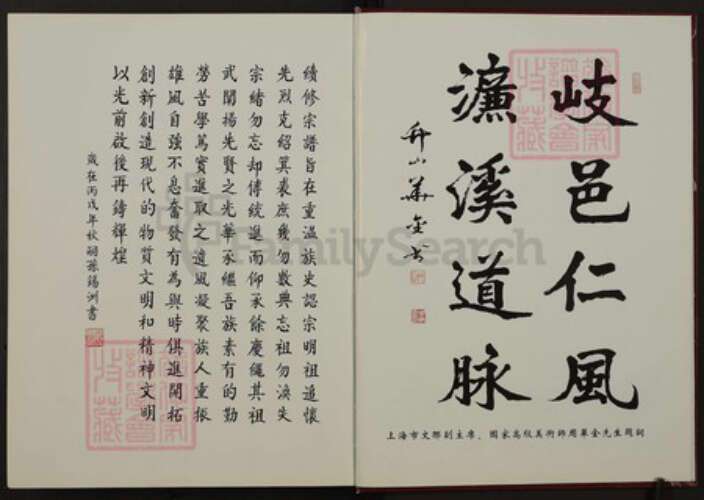 岐邑仁風
濂溪道脉
升山華金书
上海市文聯副主席、國家高級美術師周華金先生題詞
續修宗譜旨在重温族史認宗明祖追懷
先烈克紹箕裘庶幾勿數典忘祖勿涣失
宗緒勿忘却傳統進而仰承餘慶繩其祖
武闡揚先賢之光華承繼吾族素有的勤
勞苦學篤實進取之遺風凝聚族人重振
雄風自強不息奮發有為與時俱進開拓
創新創造現代的物質文明和精神文明
以光前啟後再鑄輝煌
歲在丙戌年秋嗣孫錫洲書
FamilySearch